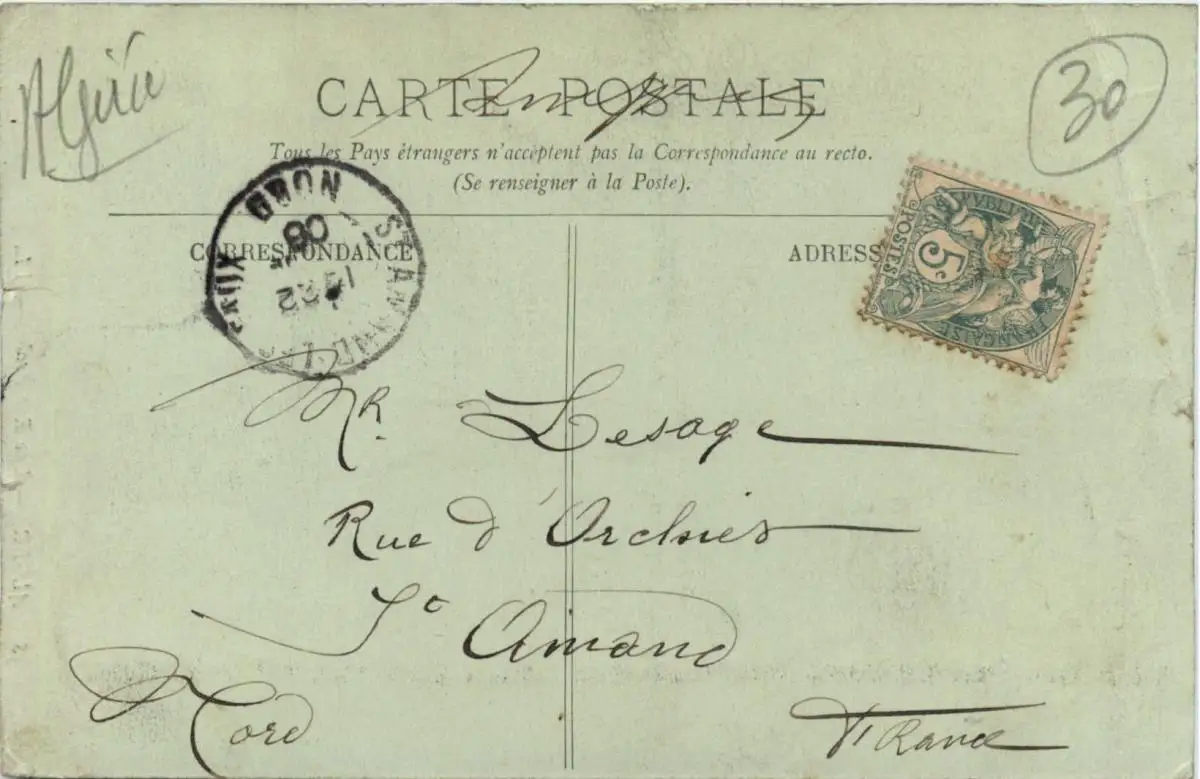 Algérie
30
CARTE POSTALE
Tous les Pays étrangers n'acceptent pas la Correspondance au recto.
(Se renseigner à la Poste).
CORRESPONDANCE
ADRESS
ST AMAND-LES EAUX NORD
22
06
RÉPUBLIQUE
FRANÇAISE
POSTES
5c
Mr. Lesage
Rue d'Orchies
St Amand
Nord
France